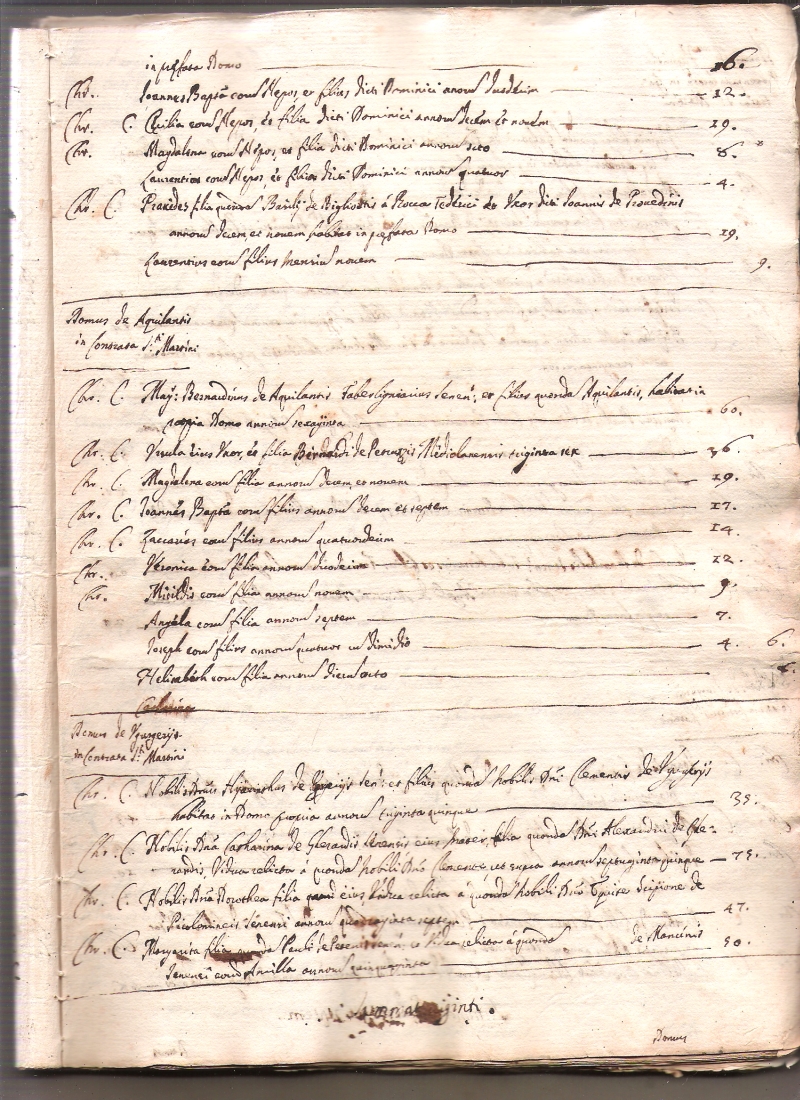 in pręfata Domo 16.
Chr. Joannes Bapta eorum Nepos, et filius dicti Dominici annorum duodecim 12.
Chr. C. Cecilia eorum Nepos, et filia dicti Dominici annorum decem et novem 19.
Chr. Magdalena eorum Nepos, et filia dicti Dominici annorum octo 8.
Laurentius eorum Nepos, et filius dicti Dominici annorum quatuor 4.
Chr. C. Praxedes filia quondam de a Rocca Federici et Uxor dicti Joannis de
annorum decem, et novem habitat in pręfata Domo 19.
Laurentius eorum filius mensium novem 9.
Domus de Aquilantis
in Contrata S.ti Martini
Chr. C. Mag: Bernardinus de Aquilantis Senen: et filius quondam Aquilantis, habitat in
propria Domo annorum sexaginta 60.
Chr. C. Ursula eius Uxor, et filia Bernardi de Mediolanensis triginta sex 36
Chr. C. Magdalena eorum filia annorum decem et novem 19.
Chr. C. Joannes Bapta eorum filius annorum decem et septem 17.
Chr. C. Zaccarias eorum filius annorum quatuordecim 14
Chr. Veronica eorum filia annorum duodecim 12
Chr. eorum filia annorum novem 9.
Angela eorum filia annorum septem 7.
Joseph eorum filius annorum quatuor cum dimidio 4. 6.
Helisabeth eorum filia annorum
Catherina
Domus de Ugurgerijs
in Contrata S.ti Martini
Chr. C. Nobilis Dnus de Ugurgerijs Sen: et filius quondam Nobilis Dni Clementis de Ugurgerijs
habitat in Domo propria annorum triginta quinque 35.
Chr. C. Nobilis Dna Catharina de Senensis eius mater, filia quondam Dni Alexandri de
Vidua relicta a quondam Nobili Dno Clemente ut supra annorum septuaginta quinque 75.
Chr. C. Nobilis Dna Dorothea filia eius Vidua relicta a quondam Nobili Dno de
Picolomineis Senensi annorum quadraginta septem 47.
Chr. C. Margarita filia quondam Pauli Vidua relicta a quondam de Mancinis
Ancilla annorum quinquaginta 50.
viginti.
Domus